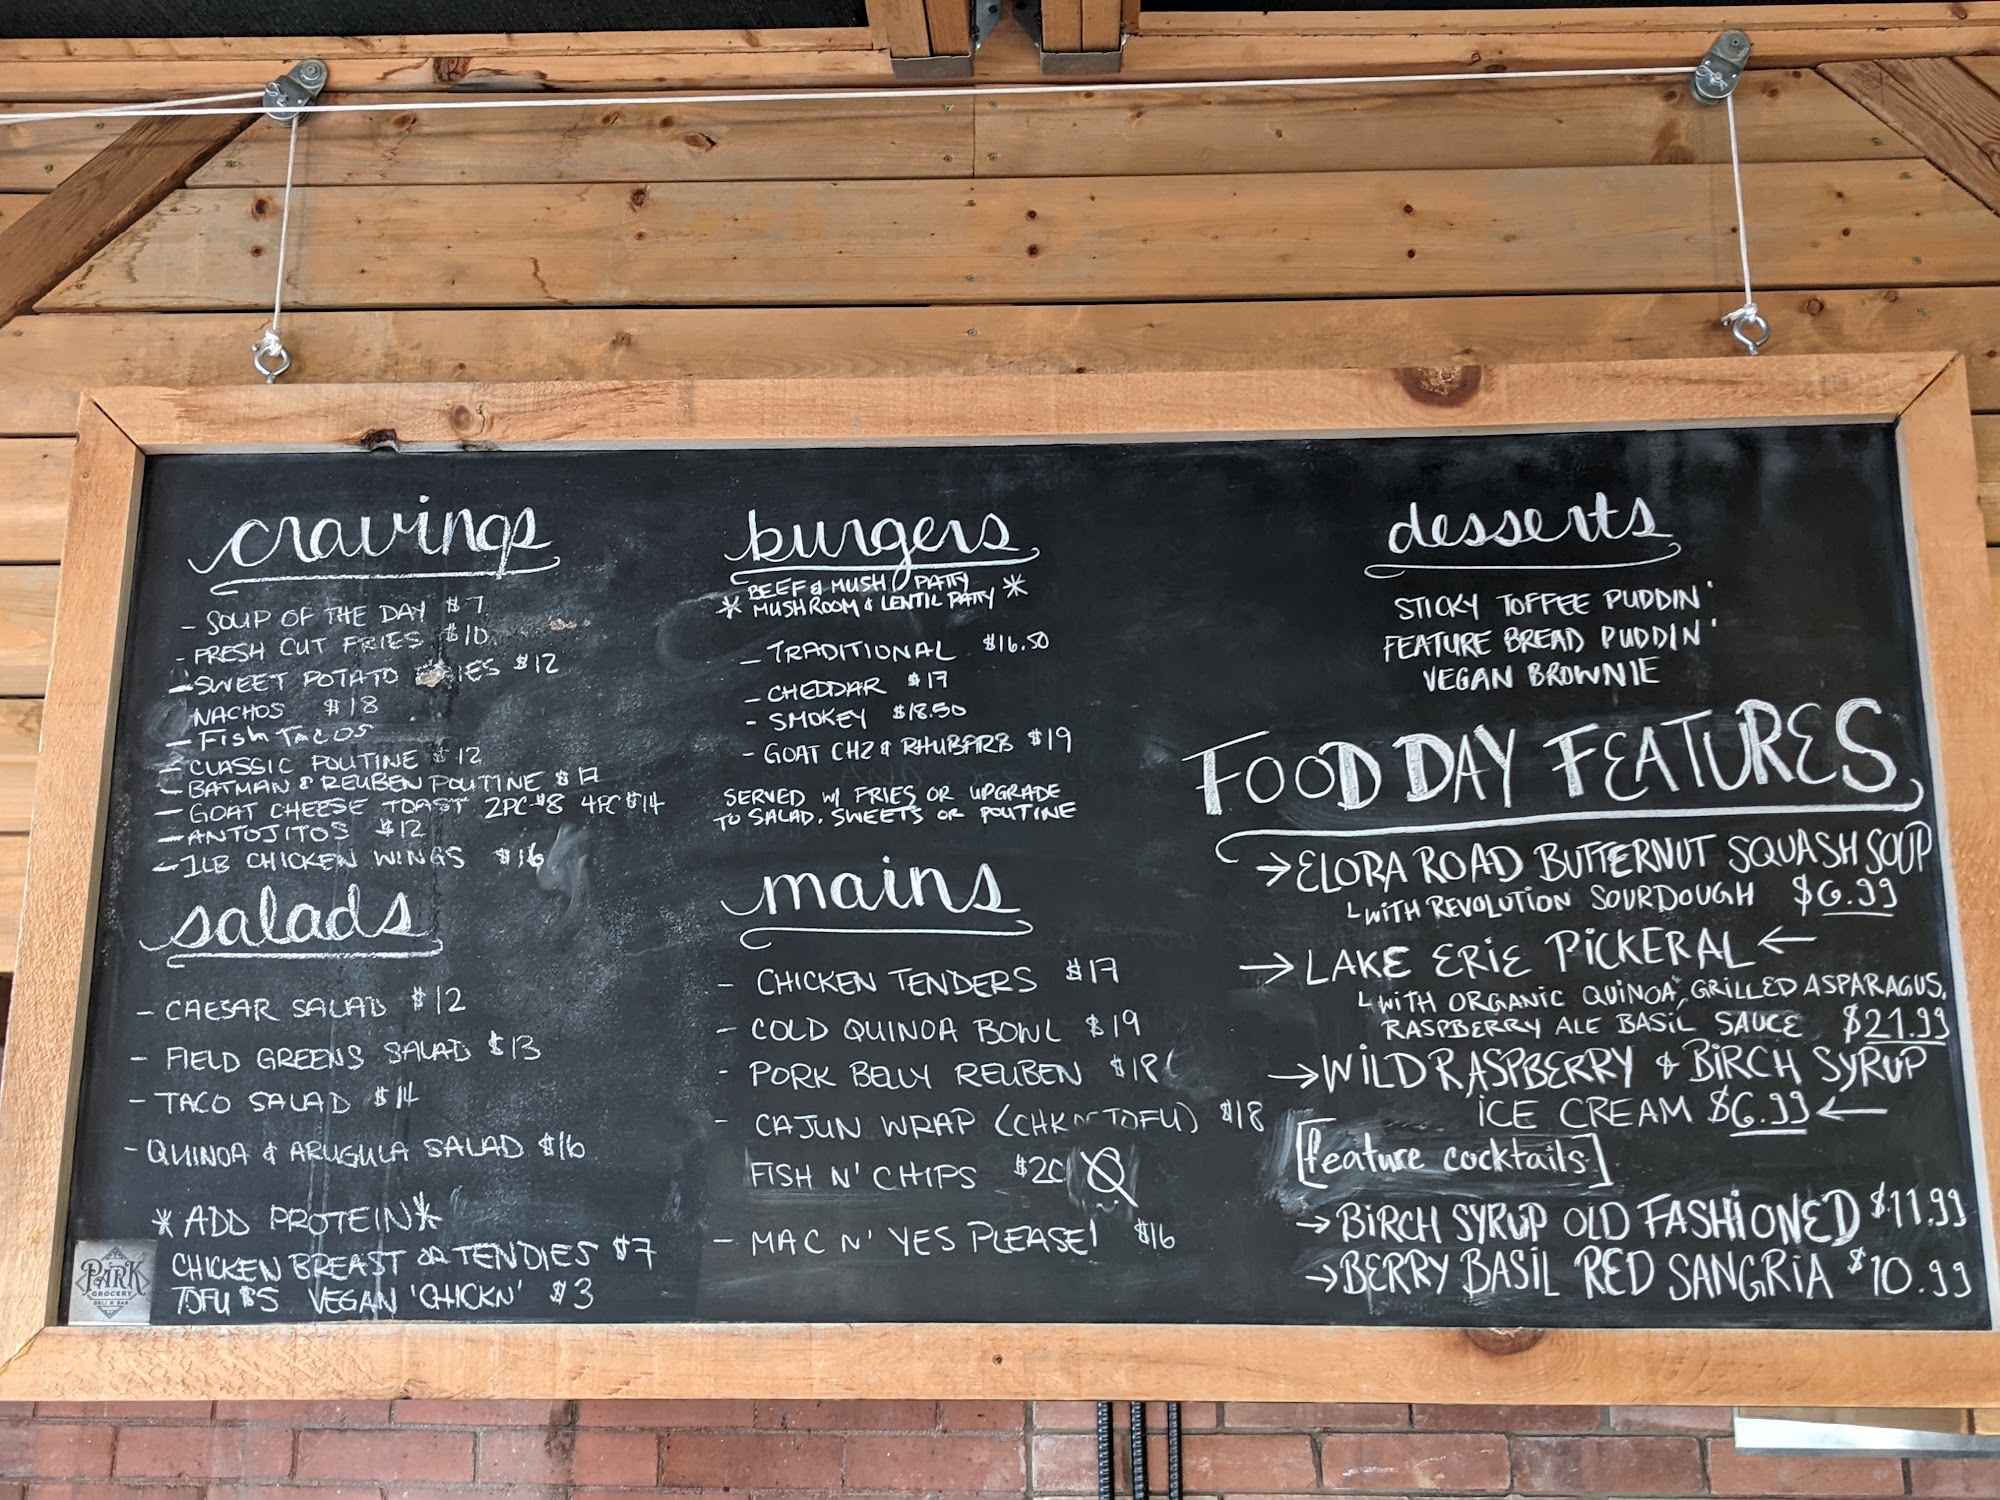 cravings
- SOUP OF THE DAY $7
- FRESH CUT FRIES $10
- SWEET POTATO FRIES $12
NACHOS $18
- Fish TACOS
- CLASSIC POUTINE $12
- BATMAN & REUBEN POUTINE $17
- GOAT CHEESE TOAST 2PC $8 4PC $14
- ANTOJITOS $12
- 1LB CHICKEN WINGS $16
salads
- CAESAR SALAD $12
- FIELD GREENS SALAD $13
- TACO SALAD $14
- QUINOA & ARUGULA SALAD $16
* ADD PROTEIN *
CHICKEN BREAST OR TENDIES $7
TOFU $5 VEGAN 'CHICKN' $3
PARK
GROCERY
DELI & BAR
burgers
* BEEF & MUSH PATTY *
MUSHROOM & LENTIL PATTY
- TRADITIONAL $16.50
- CHEDDAR $17
- SMOKEY $18.50
- GOAT CHZ & RHUBARB $19
SERVED W/ FRIES OR UPGRADE
TO SALAD, SWEETS OR POUTINE
mains
- CHICKEN TENDERS $17
- COLD QUINOA BOWL $19
- PORK BELLY REUBEN $18
- CAJUN WRAP (CHK OR TOFU) $18
FISH N' CHIPS $20
- MAC N' YES PLEASE! $16
desserts
STICKY TOFFEE PUDDIN'
FEATURE BREAD PUDDIN'
VEGAN BROWNIE
FOOD DAY FEATURES
→ ELORA ROAD BUTTERNUT SQUASH SOUP
└ WITH REVOLUTION SOURDOUGH $6.99
→ LAKE ERIE PICKERAL ←
└ WITH ORGANIC QUINOA, GRILLED ASPARAGUS,
RASPBERRY ALE BASIL SAUCE $21.99
→ WILD RASPBERRY & BIRCH SYRUP
ICE CREAM $6.99 ←
[feature cocktails]
→ BIRCH SYRUP OLD FASHIONED $11.99
→ BERRY BASIL RED SANGRIA $10.99